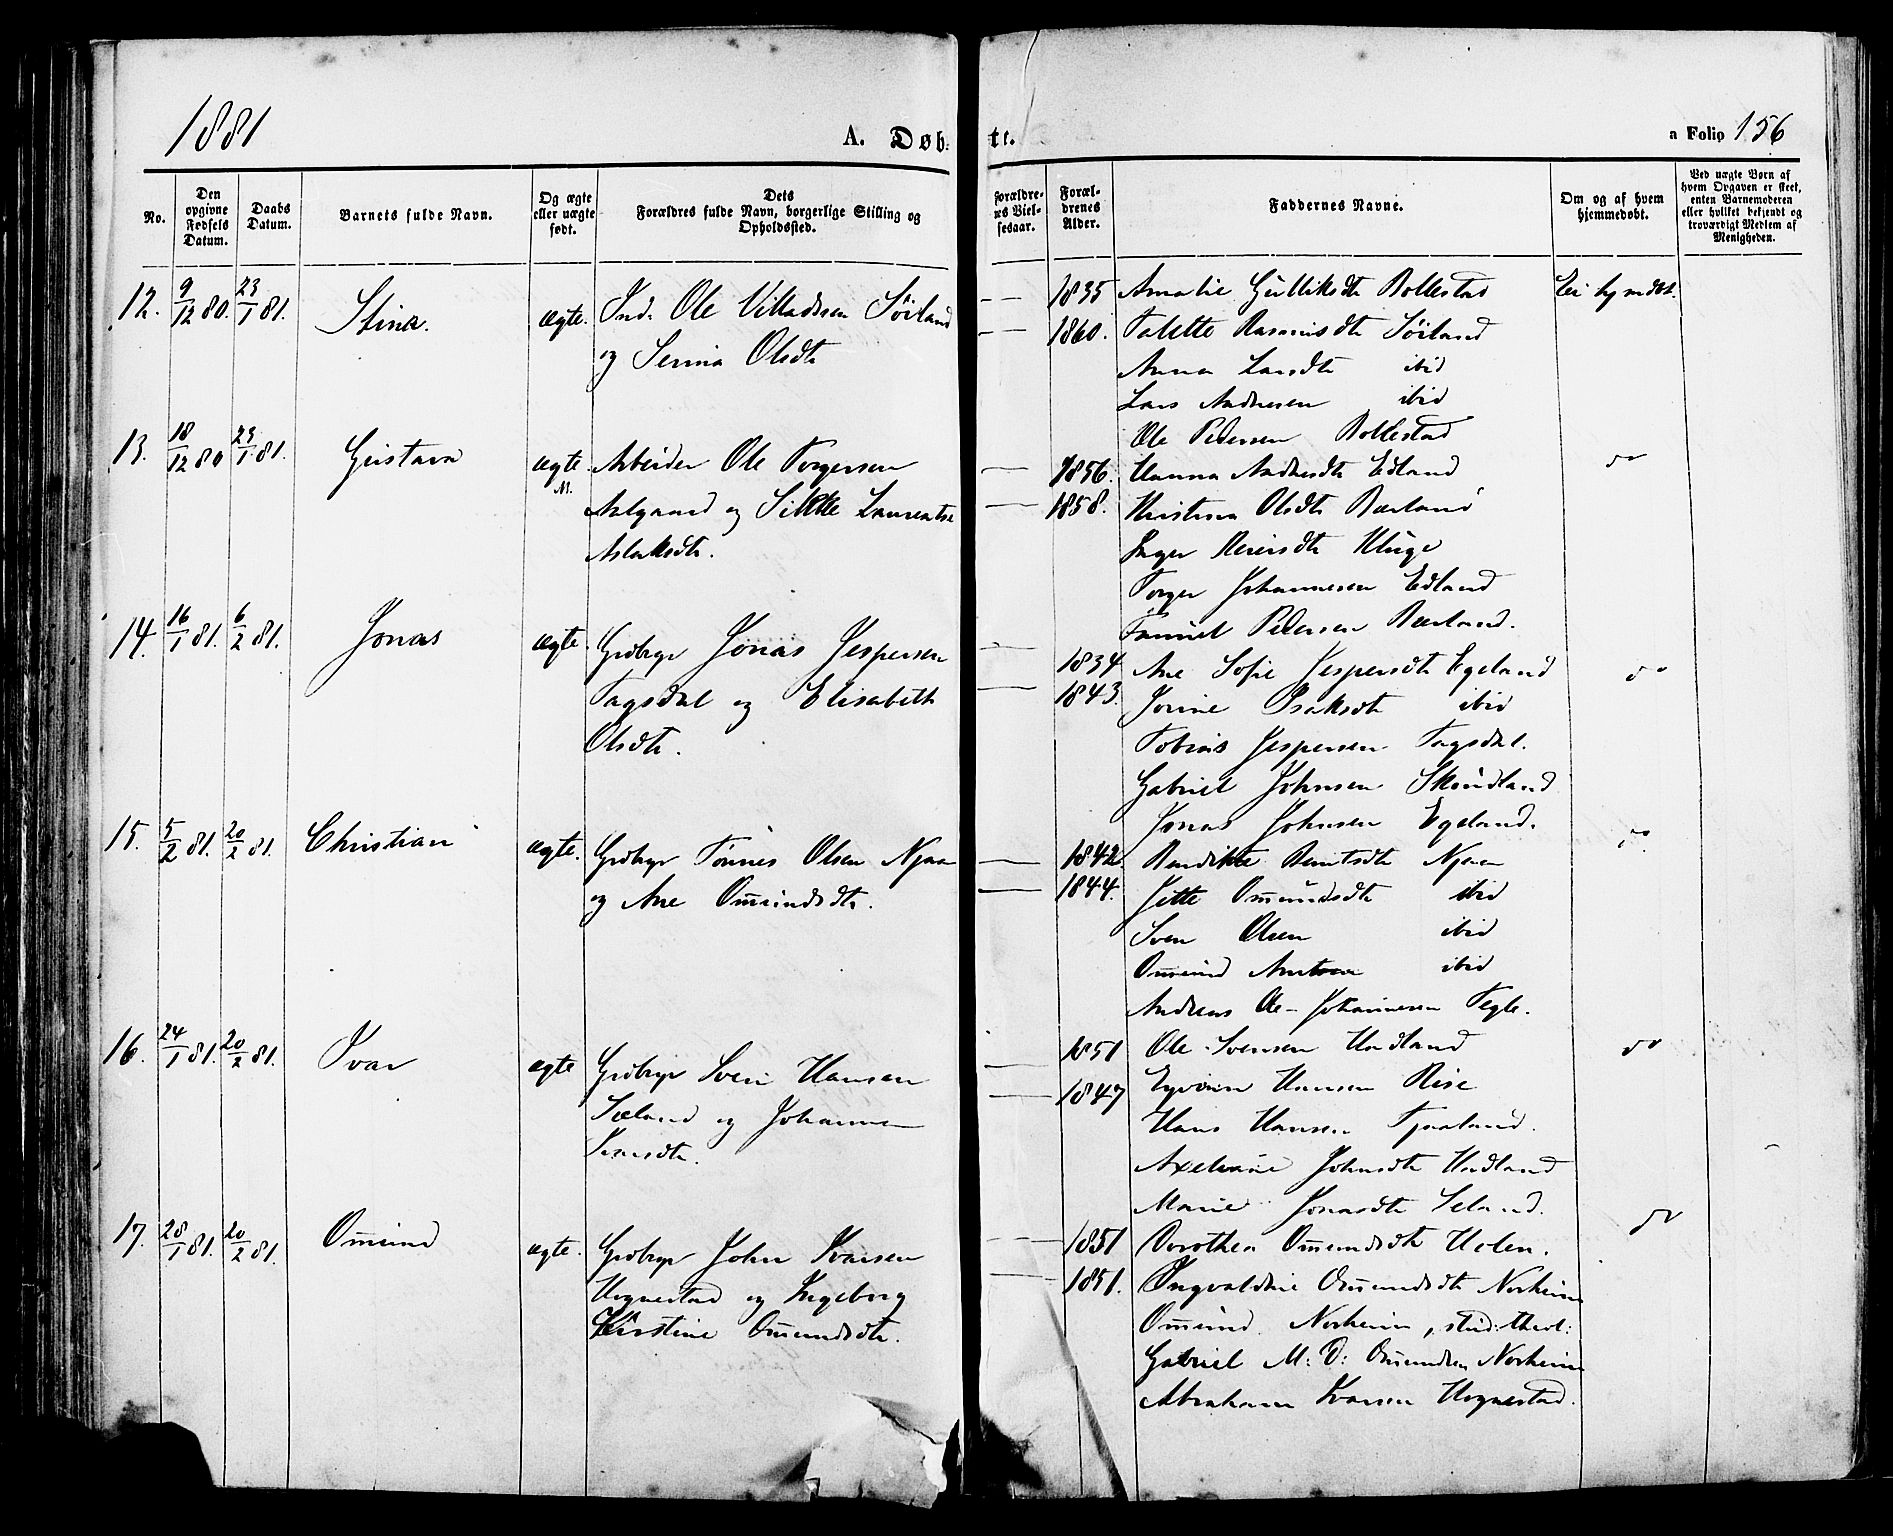 1881
A. Døb-
tt.
a Folio 156
No.
Den opgivne Fødsels Datum.
Daabs Datum.
Barnets fulde Navn.
Og ægte eller uægte født.
Dets Forældres fulde Navn, borgerlige Stilling og Opholdssted.
Forældre- nes Viel- sesaar.
Foræl- drenes Alder.
Faddernes Navne.
Om og af hvem hjemmedøbt.
Ved uægte Børn af hvem Opgaven er skeet, enten Barnemoderen eller hvilket bekjendt og troværdigt Medlem af Menigheden.
12. 9/12 80. 23/1 81. Stina. ægte. Ind. Ole Villadsen Söiland
og Serina Olsdtr
1835 Amalie Gulliksdtr Bollestad Ei hjmdbt.
1860. Talette Rasmusdtr Söiland
Anna Larsdtr ibid
Lars Andresen ibid
Ole Pedersen Bollestad
13. 18/12 80 23/1 81. Gustava ægte M. Arbeider Ole Torgersen
Aalgaard og Sikke Laurentse
Aslaksdtr.
1856. Hanna Andersdtr Edland do
1858. Kristina Olsdtr Bærland
Inger Reiersdtr Kluge
Torger Johannesen Edland
Samuel Pedersen Bærland.
14. 16/1 81. 6/2 81. Jonas ægte Grdbrgr Jonas Jespersen
Tagsdal og Elisabeth
Olsdtr.
1834 Ane Sofie Jespersdtr Egeland do
1843. Jorine Isaksdtr ibid
Tobias Jespersen Tagsdal.
Gabriel Johnsen Skundland
Jonas Johnsen Egeland.
15. 5/2 81. 20/2 81. Christian ægte. Grdbrgr Tönnes Olsen Njaa
og Ane Om̅undsdtr.
1842 Bendikte Berntsdtr Njaa do
1844. Jette Om̅undsdtr ibid
Sven Olsen ibid
Om̅und ibid
Andreas Ole Johannesen Tegle.
16. 24/1 81. 20/2 81. Ivar ægte Grdbrgr Sven Hansen
Sæland og Johanna
Ivarsdtr.
1851 Ole Svensen Undland do
1847 Eyvin Hansen Rise
Hans Hansen Tjaaland.
Axeliane Johnsdtr Undland
Marie Jonasdtr Seland.
17. 28/1 81. 20/2 81. Om̅und ægte. Grdbrgr John Ivarsen
Hognestad og Ingeborg
Kirstine Om̅undsdtr.
1851 Dorothea Om̅undsdtr Helen. do
1851. Ingvaldine Om̅undsdtr Norheim
Om̅und Norheim, stud: theol:
Gabriel M: D: Om̅undsen Norheim
Abraham Ivarsen Hognestad.